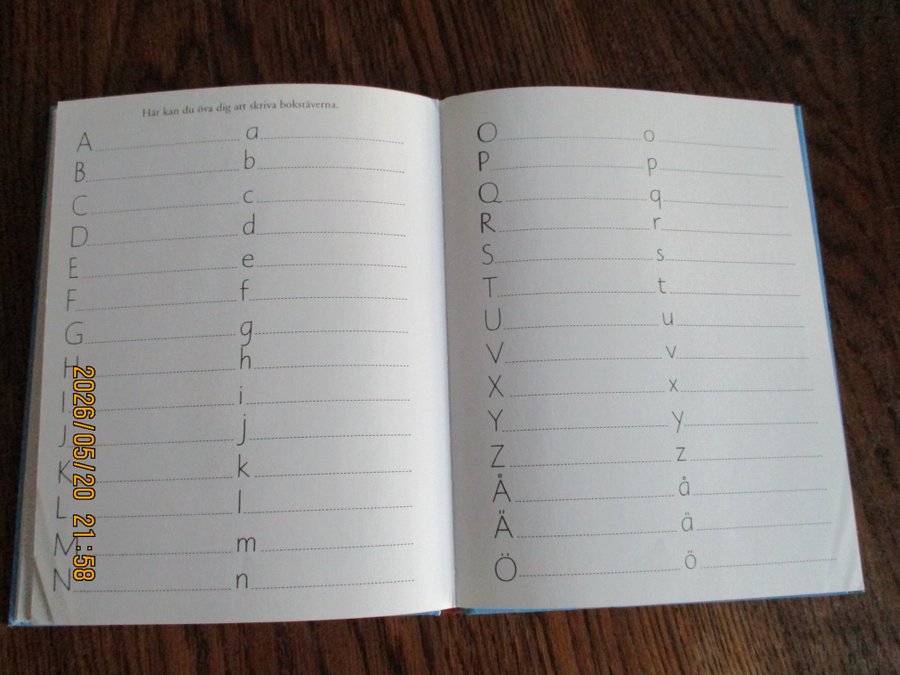 Här kan du öva dig att skriva bokstäverna.
A a
B b
C c
D d
E e
F f
G g
H h
I i
J j
K k
L l
M m
N n
O o
P p
Q q
R r
S s
T t
U u
V v
X x
Y y
Z z
Å å
Ä ä
Ö ö
2026/05/20 21:58